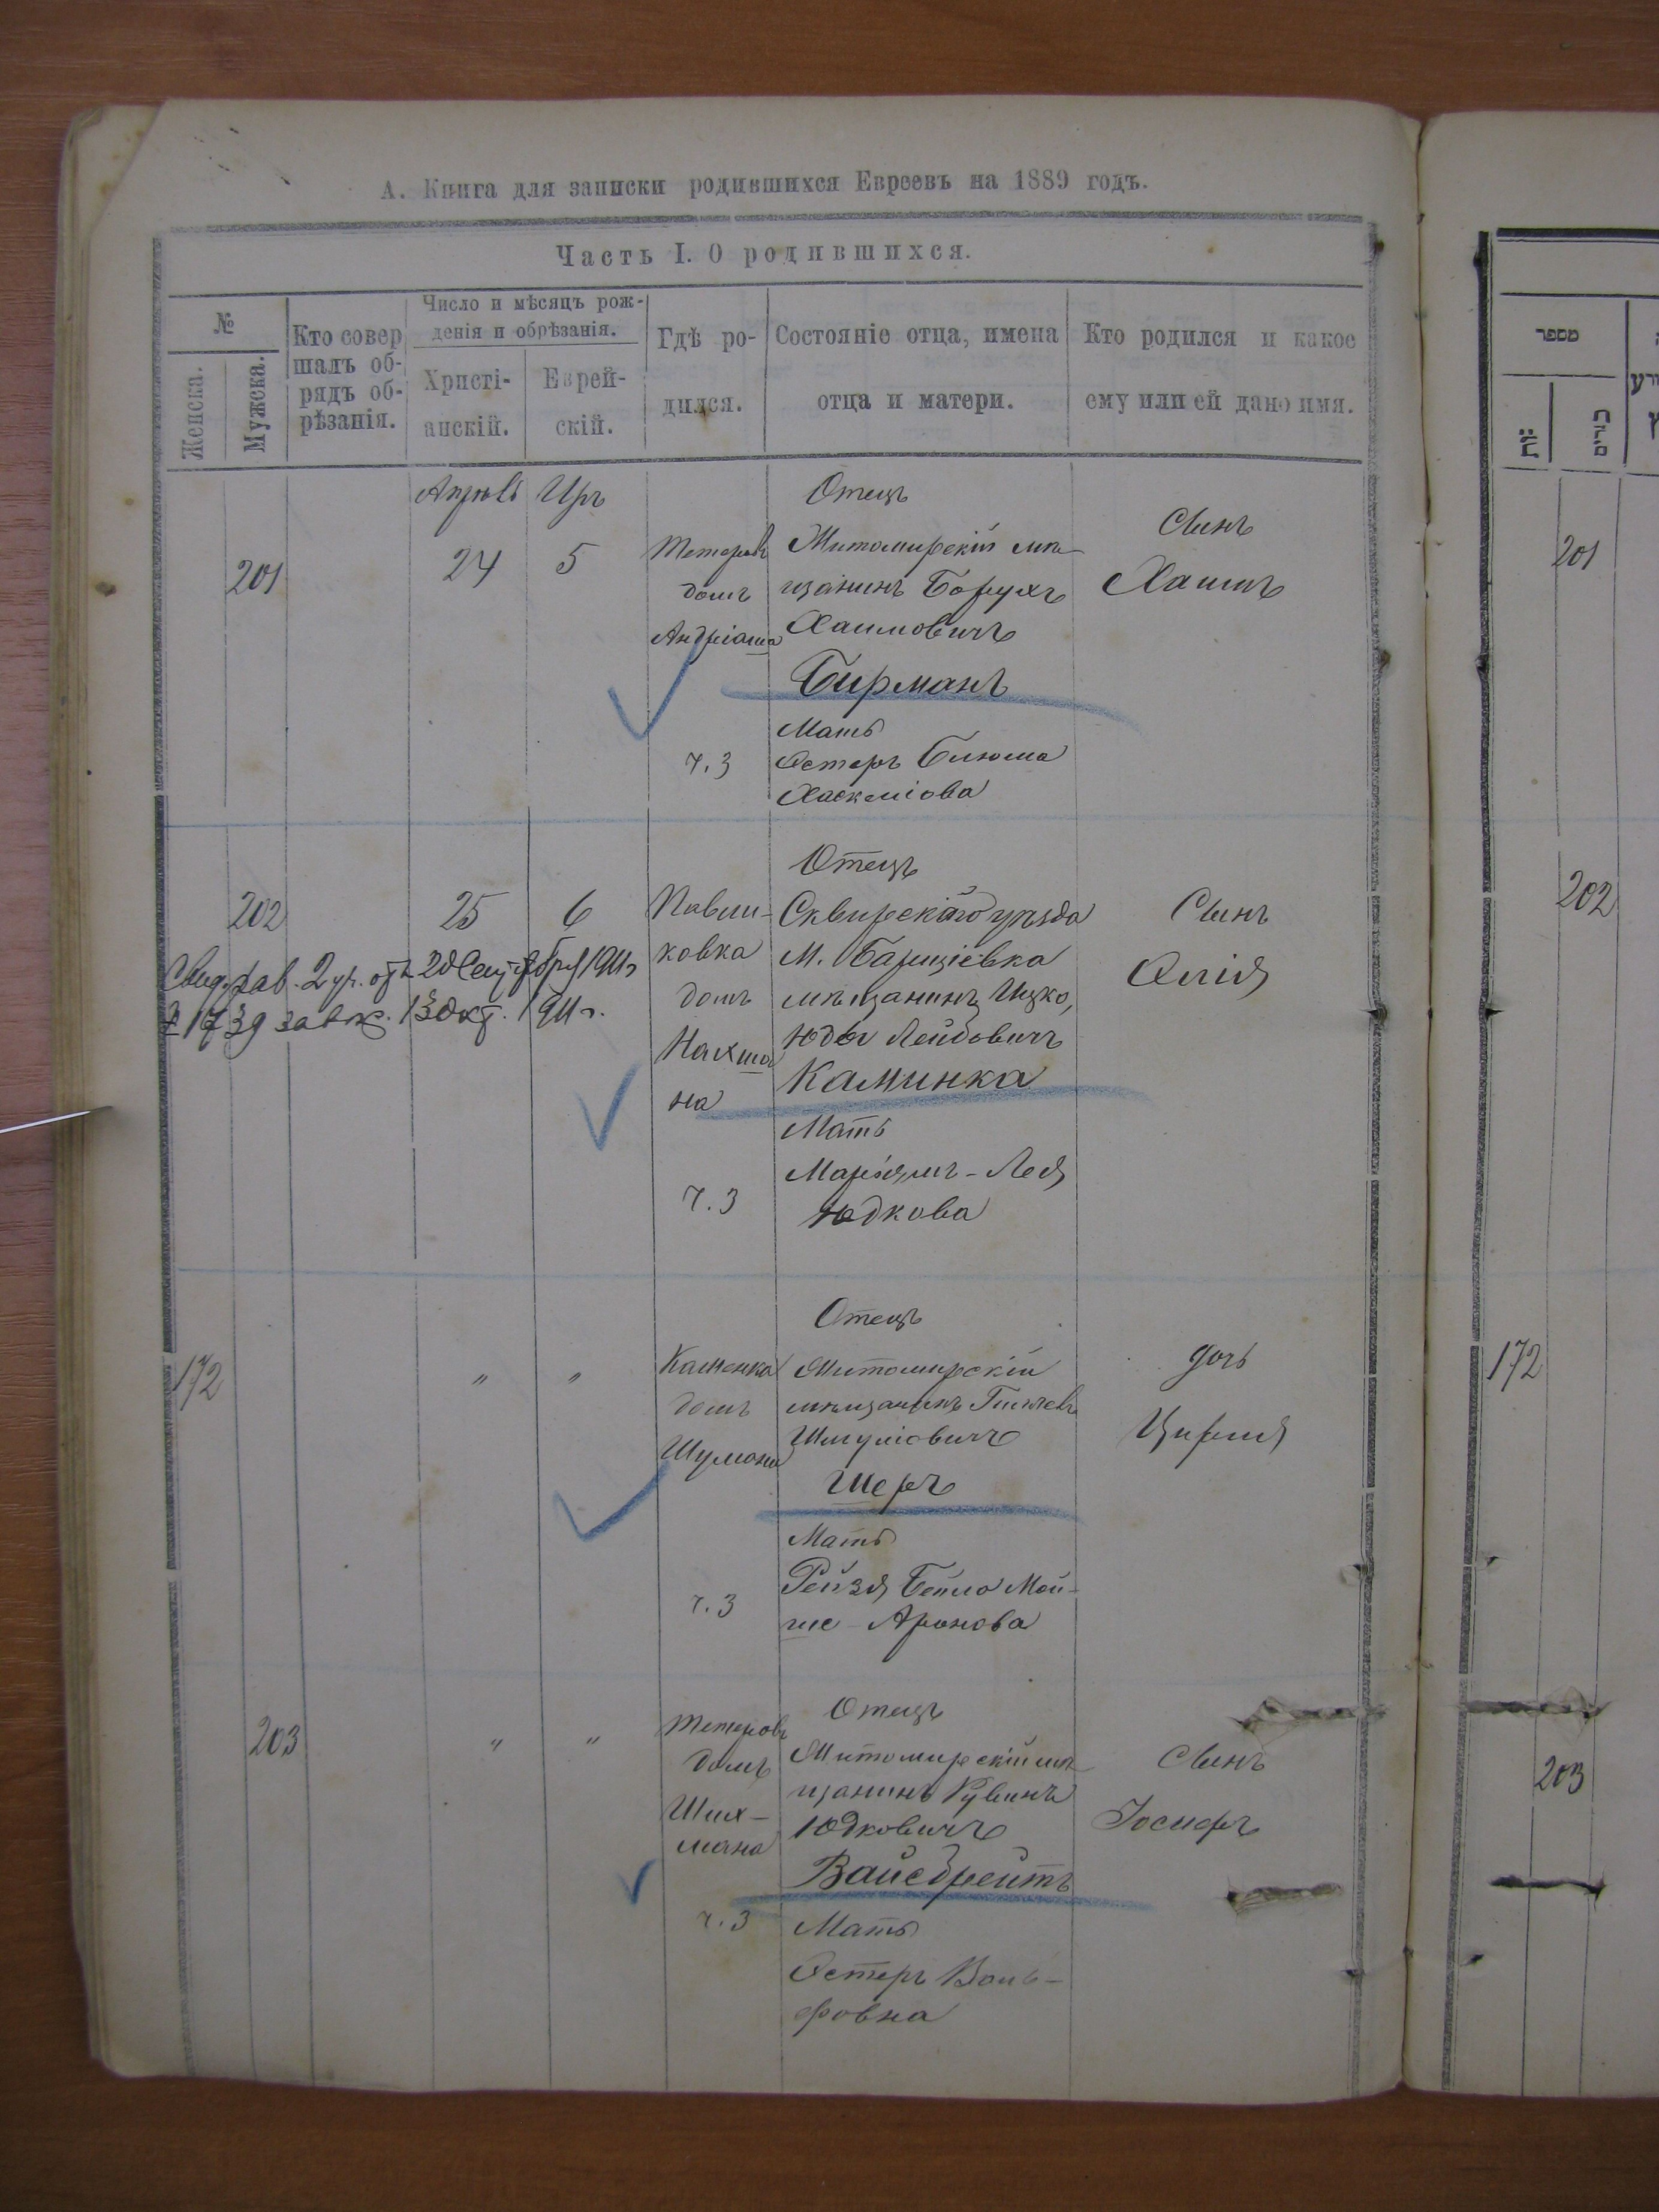 А. Книга для записки родившихся Евреевъ на 1889 годъ.
Часть I. О родившихся.
№
Женска.
Мужска.
Кто совер
шалъ об-
рядъ об-
рѣзанія.
Число и мѣсяцъ рож-
денія и обрѣзанія.
Христі-
анскій.
Еврей-
скій.
Гдѣ ро-
дился.
Состояніе отца, имена
отца и матери.
Кто родился и какое
ему или ей дано имя.
201
Апрѣль
24
Иръ
5
Тетеревъ
домъ
ч. 3
Отецъ
Житомирскій мѣ-
щанинъ Борухъ
Хаимовичъ
Бирманъ
Мать
Эстеръ Блюма
Хаскеліова
Сынъ
Хаимъ
202
25
6
Павли-
ковка
домъ
Нахма
на
ч. 3
Отецъ
Сквирскаго уѣзда
М. Барщіевка
мѣщанинъ Ицко,
Юдка Лейбовичъ
Каминка
Мать
Марьямъ-Лея
Юдкова
Сынъ
Эліа
20 Сентября 1911 г.
13 Окт. 1911 г.
172
"
"
Каменка
домъ
Шумана
ч. 3
Отецъ
Житомирскій
мѣщанинъ
Шмуліовичъ
Шеръ
Мать
Рейзя Бейла Мой-
ше-Аронова
дочь
Цирля
203
"
"
Тетеревъ
домъ
Ших-
мана
ч. 3
Отецъ
Житомирскій мѣ-
щанинъ Рувинъ
Юдковичъ
Вайсбрейтъ
Мать
Эстеръ Воль-
фовна
Сынъ
Іосифъ
מספר
201
202
172
203